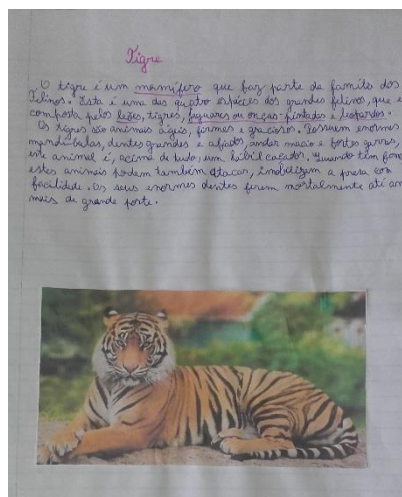 Tigre
O tigre é um mamífero que faz parte da família dos
felinos. Esta é uma das quatro espécies dos grandes felinos, que é
composta pelos leões, tigres, jaguares ou onças-pintadas e leopardos.
Os tigres são animais ágeis, firmes e graciosos. Possuem enormes
mandíbulas, dentes grandes e afiados, andar macio e fortes garras,
este animal é, acima de tudo, um hábil caçador. Quando têm fome
estes animais podem também atacar, imobilizam a presa com
facilidade. Os seus enormes dentes ferem mortalmente até
mais de grande porte.